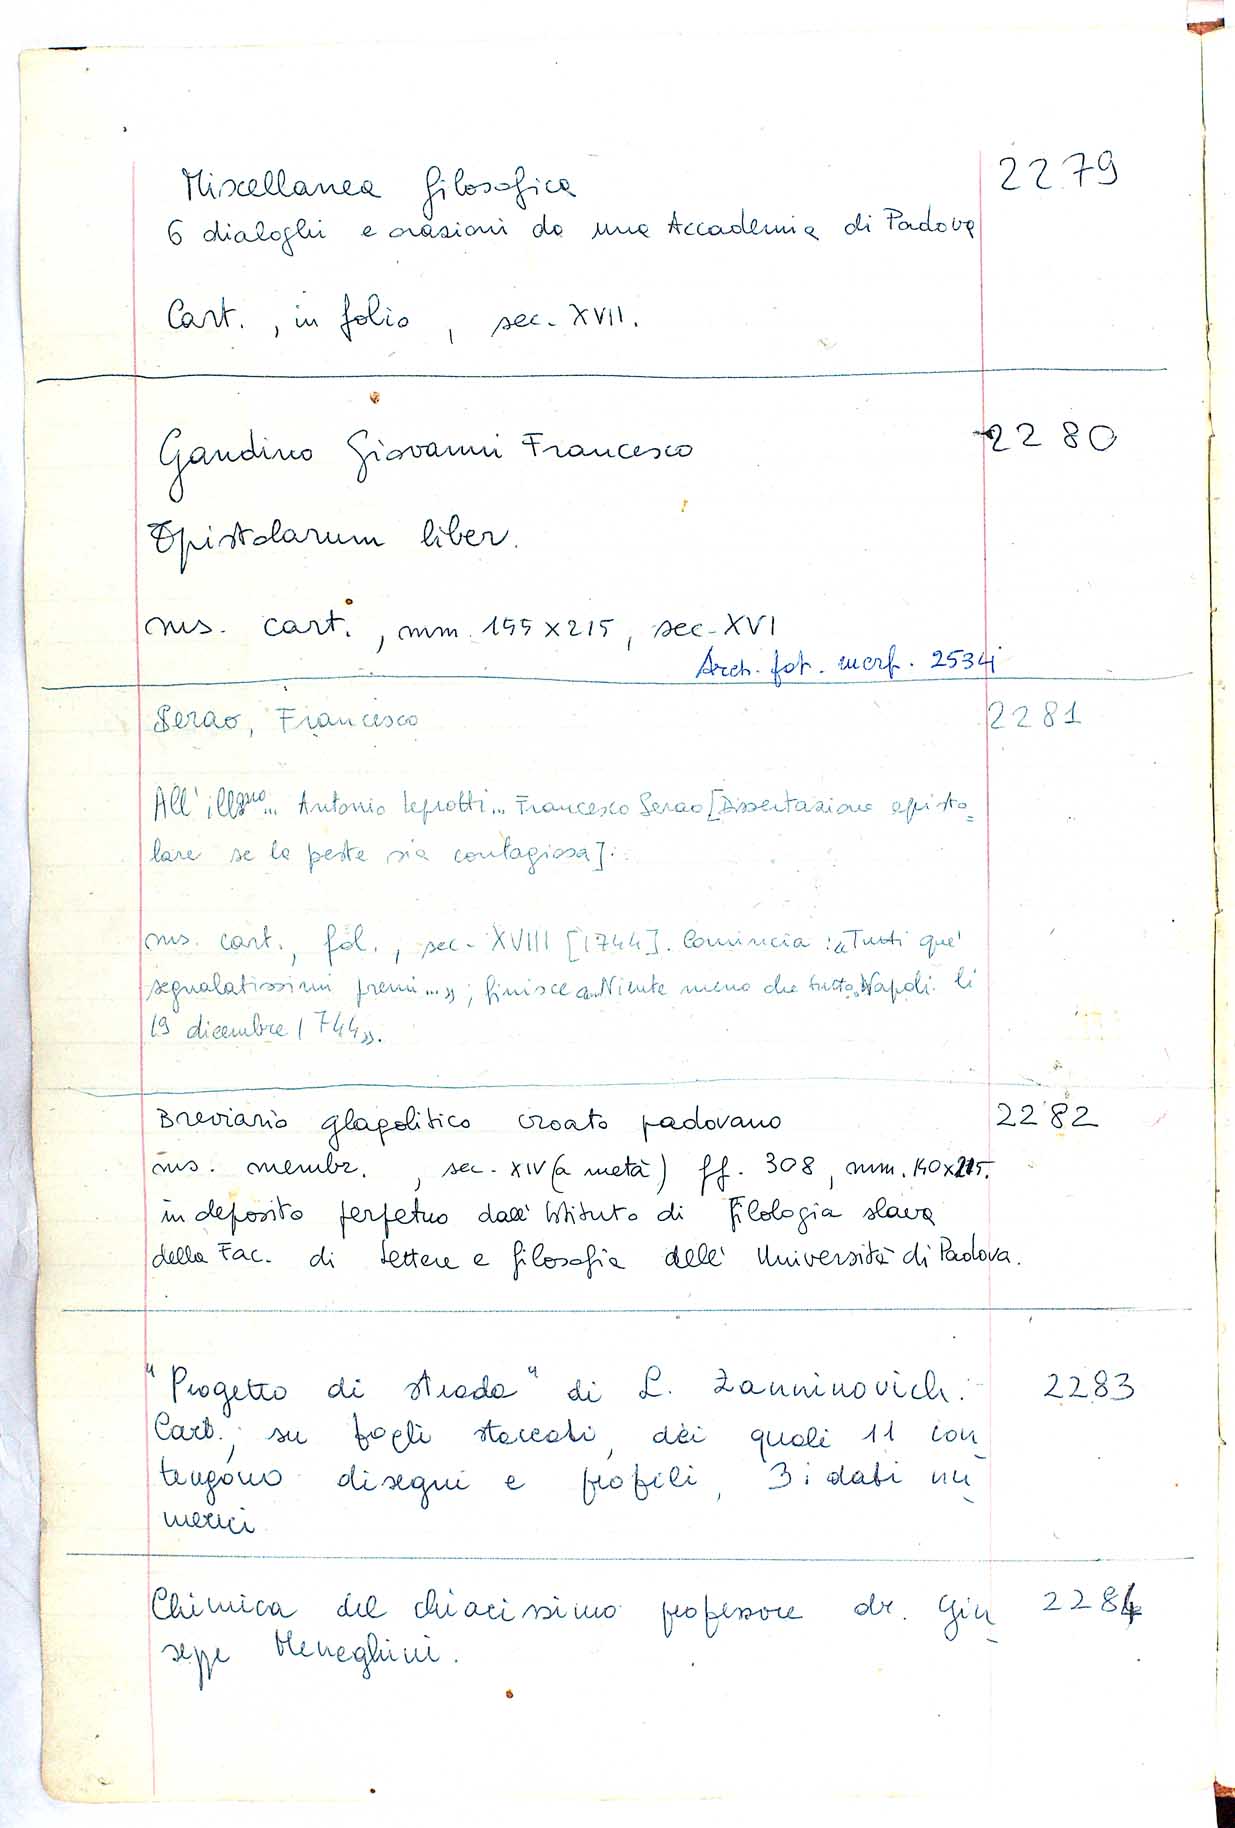 Miscellanea filosofica 2279
6 dialoghi e orazioni da una Accademia di Padova
Cart. , in folio , sec. XVII.
Gandino Giovanni Francesco 2280
Epistolarum liber.
ms. cart. , mm. 155 x 215 , sec. XVI
Arch. fot. 2534
Serao, Francesco 2281
All' ill.mo... Antonio Leprotti... Francesco Serao [Dissertazione episto=
lare se la peste sia contagiosa].
ms. cart., fol. , sec. XVIII [1744]. Comincia : «Tutti que'
segnalatissimi premi...» ; finisce «..Niente meno che tutto. Napoli li
19 dicembre 1744».
Breviario glagolitico croato padovano 2282
ms. membr. , sec. XIV (a metà) ff. 308 , mm. 140x215.
in deposito perpetuo dall' Istituto di Filologia slava
della Fac. di Lettere e filosofia dell' Università di Padova.
"Progetto di strada" di L. Zanninovich. 2283
Cart., su fogli staccati, dei quali 11 con_
tengono disegni e profili, 3 i dati nu_
merici
Chimica del chiarissimo professore dr. Giu_ 2284
seppe Meneghini.